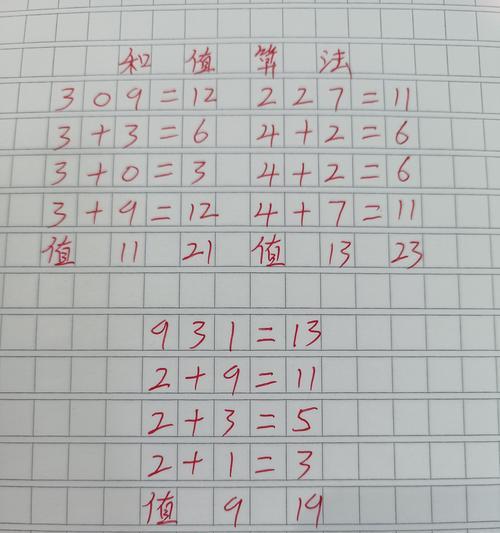 和 值 算 法
3 0 9 = 12 2 2 7 = 11
3 + 3 = 6 4 + 2 = 6
3 + 0 = 3 4 + 2 = 6
3 + 9 = 12 4 + 7 = 11
值 11 21 值 13 23
9 3 1 = 13
2 + 9 = 11
2 + 3 = 5
2 + 1 = 3
值 9 19